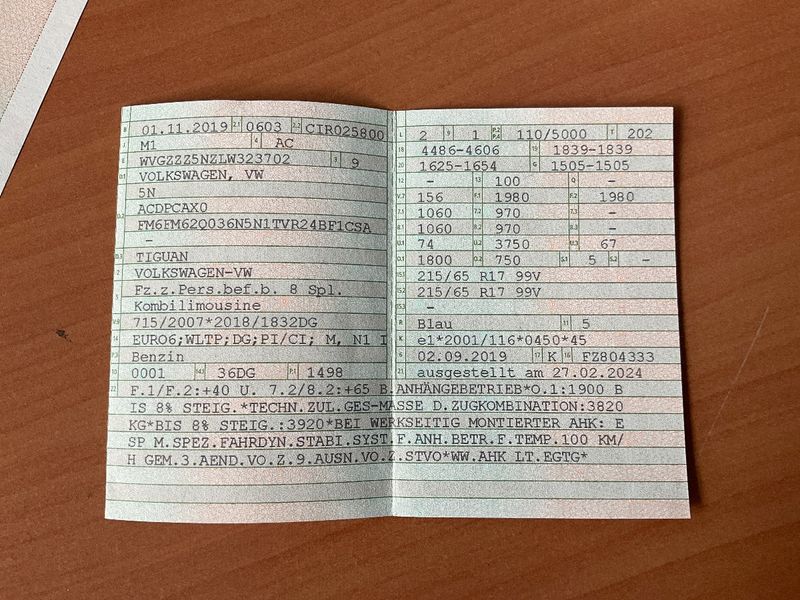 B 01.11.2019 2.1 0603 2.2 CIR025800
J M1 4 AC
E WVGZZZ5NZLW323702 3 9
D.1 VOLKSWAGEN, VW
5N
D.2 ACDPCAX0
FM6FM62Q036N5N1TVR24BF1CSA
-
D.3 TIGUAN
2 VOLKSWAGEN-VW
5 Fz.z.Pers.bef.b. 8 Spl.
Kombilimousine
V.9 715/2007*2018/1832DG
14 EURO6;WLTP;DG;PI/CI; M, N1 I
P.3 Benzin
10 0001 14.1 36DG P.1 1498
L 2 9 1 P.2 P.4 110/5000 T 202
18 4486-4606 19 1839-1839
20 1625-1654 G 1505-1505
12 - 13 100 Q -
V.7 156 F.1 1980 F.2 1980
7.1 1060 7.2 970 7.3 -
8.1 1060 8.2 970 8.3 -
U.1 74 U.2 3750 U.3 67
O.1 1800 O.2 750 S.1 5 S.2 -
15.1 215/65 R17 99V
15.2 215/65 R17 99V
15.3 -
R Blau 11 5
K e1*2001/116*0450*45
6 02.09.2019 17 K 16 FZ804333
21 ausgestellt am 27.02.2024
22 F.1/F.2:+40 U. 7.2/8.2:+65 B.ANHÄNGEBETRIEB*O.1:1900 B
IS 8% STEIG.*TECHN.ZUL.GES-MASSE D.ZUGKOMBINATION:3820
KG*BIS 8% STEIG.:3920*BEI WERKSEITIG MONTIERTER AHK: E
SP M.SPEZ.FAHRDYN.STABI.SYST.F.ANH.BETR.F.TEMP.100 KM/
H GEM.3.AEND.VO.Z.9.AUSN.VO.Z.STVO*WW.AHK LT.EGTG*